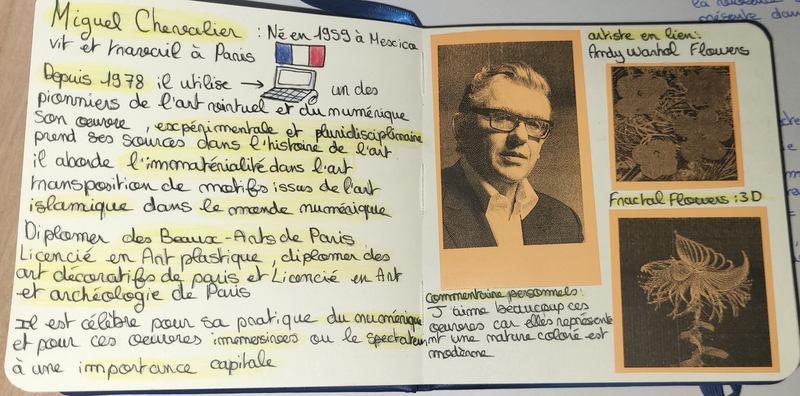 Miguel Chevalier : Né en 1959 à Mexico
vit et travail à Paris
Depuis 1978 il utilise → un des
pionniers de l'art virtuel et du numérique
son oeuvre, expérimentale et pluridisciplinaire
prend ses sources dans l'histoire de l'art
il aborde l'immatérialité dans l'art
transposition de motifs issus de l'art
islamique dans le monde numérique
Diplomer des Beaux-Arts de Paris
Licencié en Art plastique, diplomer des
art décoratifs de paris et Licencié en Art
et archéologie de Paris
Il est célèbre pour sa pratique du numérique
et pour ces oeuvres immersives ou le spectateur
à une importance capitale
artiste en lien:
Andy Warhol Flowers
Fractal Flowers : 3D
commentaire personnels:
J'aime beaucoup ces
oeuvres car elles représente
nt une nature coloré est
moderne